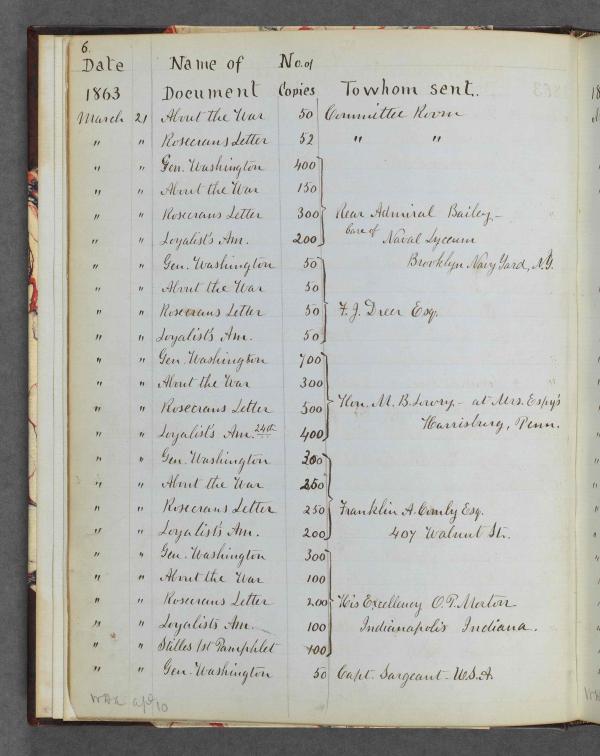 6.
Date Name of No. of
1863 Document Copies To whom sent.
March 21 About the War 50 Committee Room
" " Rosecrans Letter 52 " "
" " Gen. Washington 400
" " About the War 150
" " Rosecrans Letter 300 Rear Admiral Bailey-
" " Loyalist's Am. 200 Care of Naval Lyceum
" " Gen. Washington 50 Brooklyn Navy Yard, N.Y.
" " About the War 50
" " Rosecrans Letter 50 F. J. Dreer Esq.
" " Loyalist's Am. 50
" " Gen. Washington 700
" " About the War 300
" " Rosecrans Letter 500 Hon. M. B. Lowry- at Mrs. Espy's
" " Loyalist's Am. 24th 400 Harrisburg, Penn.
" " Gen. Washington 300
" " About the War 250
" " Rosecrans Letter 250 Franklin A. Comly Esq.
" " Loyalist's Am. 200 407 Walnut St.
" " Gen. Washington 300
" " About the War 100
" " Rosecrans Letter 200 His Excellency O. P. Morton
" " Loyalists Am. 100 Indianapolis Indiana.
" " Stilles 1st Pamphlet 100
" " Gen. Washington 50 Capt. Sargeant- U.S.A